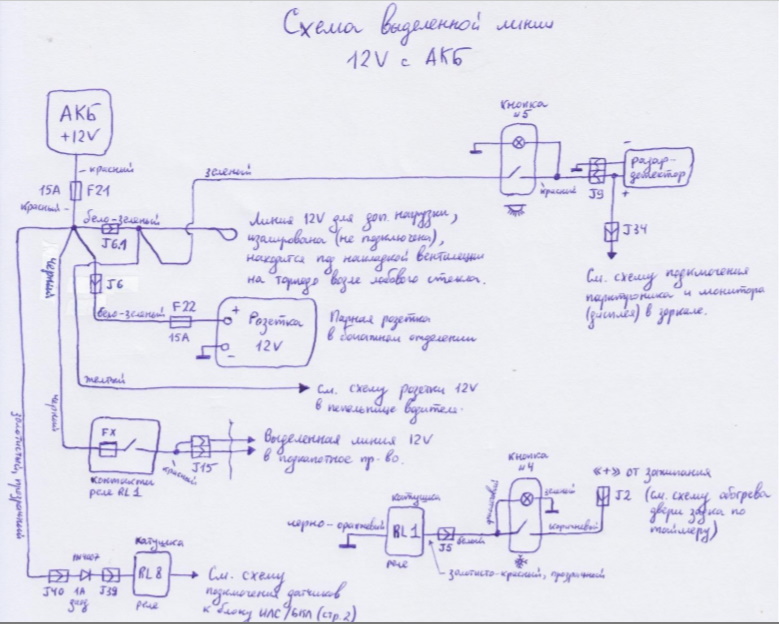 Схема выделенной линии
12V с АКБ
АКБ
+12V
красный
15А
F21
красный
бело-зеленый
J6.1
зеленый
Кнопка
n5
красный
J9
-
+
радар-
детектор
J34
См. схему подключения
парктроника и монитора
(дисплея) в зеркале.
Линия 12V для доп. нагрузки,
изолирована (не подключена),
находится под накладкой вентиляции
на торпедо возле лобового стекла.
черный
J6
бело-зеленый
F22
15А
+
-
Розетка
12V
Парная розетка
в багажном отделении
желтый
См. схему розетки 12V
в пепельнице водителя.
черный
FX
контакты
реле RL1
красный
J15
Выделенная линия 12V
в подкапотное пр-во.
золотистый, прозрачный
J40
1N4007
1А
диод
J39
катушка
RL8
реле
См. схему
подключения датчиков
к блоку ИЛС/БКА (стр.2)
черно-оранжевый
катушка
RL1
реле
J5
белый
золотисто-красный, прозрачный
Кнопка
n4
оранжевый
зеленый
коричневый
«+» от зажигания
J2
(см. схему обогрева
двери задка по
таймеру)